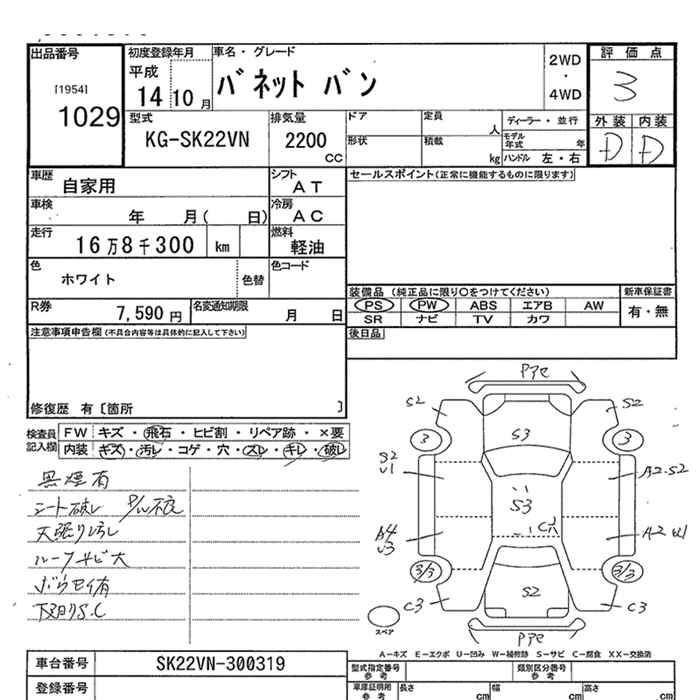 出品番号
[1954]
1029
初度登録年月
平成
14 10 月
車名・グレード
バネット バン
2WD
・
4WD
評価点
3
外装 内装
D D
型式
KG-SK22VN
排気量
2200
CC
ドア
定員
人
形状
積載
kg
ディーラー・並行
モデル年式 年
ハンドル 左・右
車歴
自家用
シフト
AT
車検
年 月( 日)
冷房
AC
走行
16万8千300 km
燃料
軽油
色
ホワイト
色替
色コード
R券
7,590 円
名変通知期限
月 日
セールスポイント(正常に機能するものに限ります)
装備品 (純正品に限り○をつけてください)
新車保証書
PS PW ABS エアB AW
有・無
SR ナビ TV カワ
後日品
注意事項申告欄(不具合内容等は具体的に記入して下さい)
修復歴 有〔箇所 〕
検査員
記入欄
FW キズ・飛石・ヒビ割・リペア跡・×要
内装 キズ・汚レ・コゲ・穴・スレ・キレ・破レ
黒煙有
シート破レ P/W不良
天張り汚レ
ルーフサビ大
下廻りS.C
PアセS2
S2
3
3
S3
S2
U1
A2.S2
S3
A4
U3
A2 U1
3/3
3/3
C3
S2
C3
Pアセ
スペア
A-キズ E-エクボ U-凹み W-補修跡 S-サビ C-腐食 XX-交換済
車台番号
SK22VN-300319
登録番号
型式指定番号
参考
類別区分番号
参考
車庫証明用
参考
長さ cm
幅 cm
高さ cm